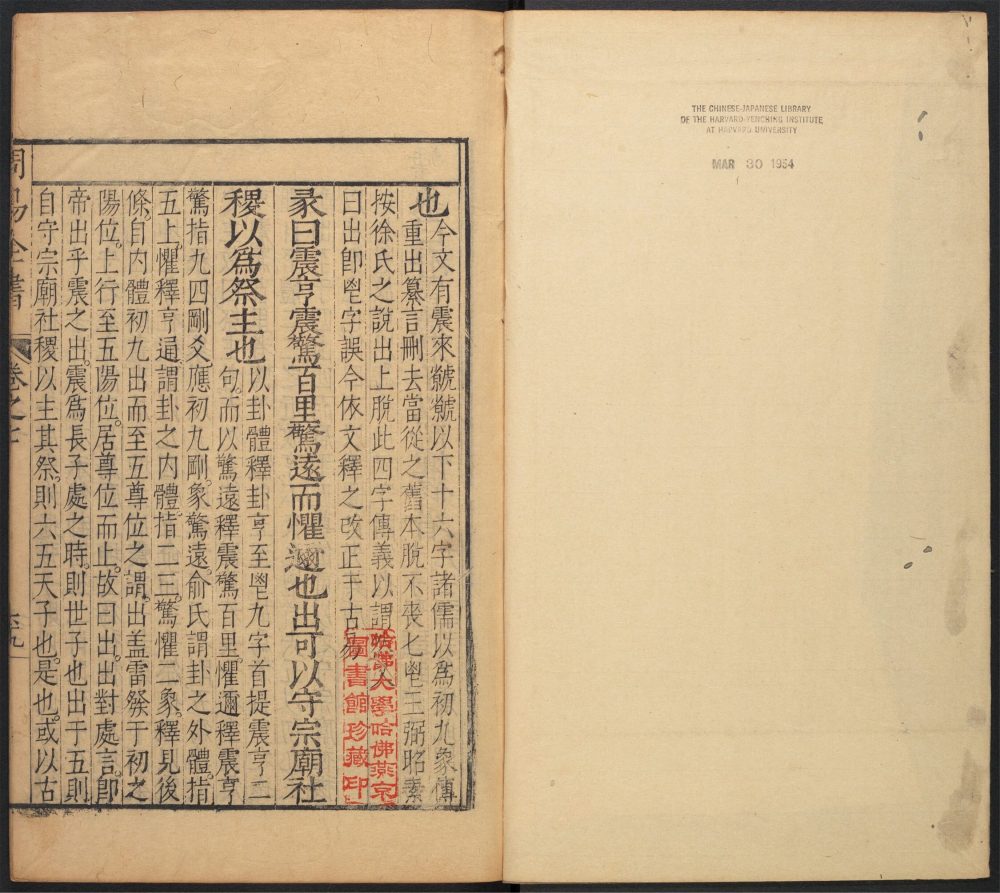 THE CHINESE-JAPANESE LIBRARY
OF THE HARVARD-YENCHING INSTITUTE
AT HARVARD UNIVERSITY
MAR 30 1954
也今文有震來虩虩以下十六字諸儒以爲初九象傳
重出纂言刪去當從之舊本脫不喪匕鬯王弼昭素
按徐氏之說出上脫此四字傳義以謂
曰出卽鬯字誤今依文釋之改正于古易
哈佛大學哈佛燕京
圖書館珍藏印
彖曰震亨震驚百里驚遠而懼邇也出可以守宗廟社
稷以爲祭主也以卦體釋卦亨至鬯九字首提震亨二
句。而以驚遠釋震驚百里。懼邇釋震亨
驚指九四剛爻。應初九剛。象驚遠。俞氏謂卦之外體。指
五上。懼釋亨通。謂卦之内體。指二三。驚懼二象。釋見後
條。自内體初九出而至五尊位之謂。出盖雷發于初之
陽位。上行至五陽位。居尊位而止。故曰出。出對處言。卽
帝出乎震之出。震爲長子處之時。則世子也出于五則
自守宗廟社稷以主其祭。則六五天子也。是也。或以古
周易全書